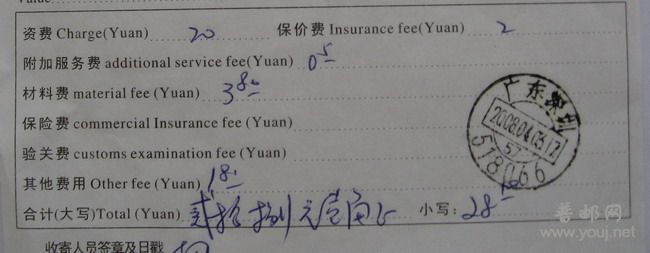 资费 Charge(Yuan) 20 保价费 Insurance fee(Yuan) 2
附加服务费 additional service fee(Yuan) 0.5
材料费 material fee (Yuan) 3.8
保险费 commercial Insurance fee (Yuan)
验关费 customs examination fee (Yuan)
其他费用 Other fee (Yuan) 1.8
合计(大写)Total (Yuan) 贰拾捌元壹角 小写: 28.10
收寄人员签章及日戳
广东深圳
2008.04.03.17
57
518066
普邮网
www.youj.net